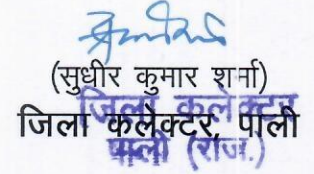 (सुधीर कुमार शर्मा)
जिला कलेक्टर
जिला कलेक्टर, पाली
पाली (राज.)